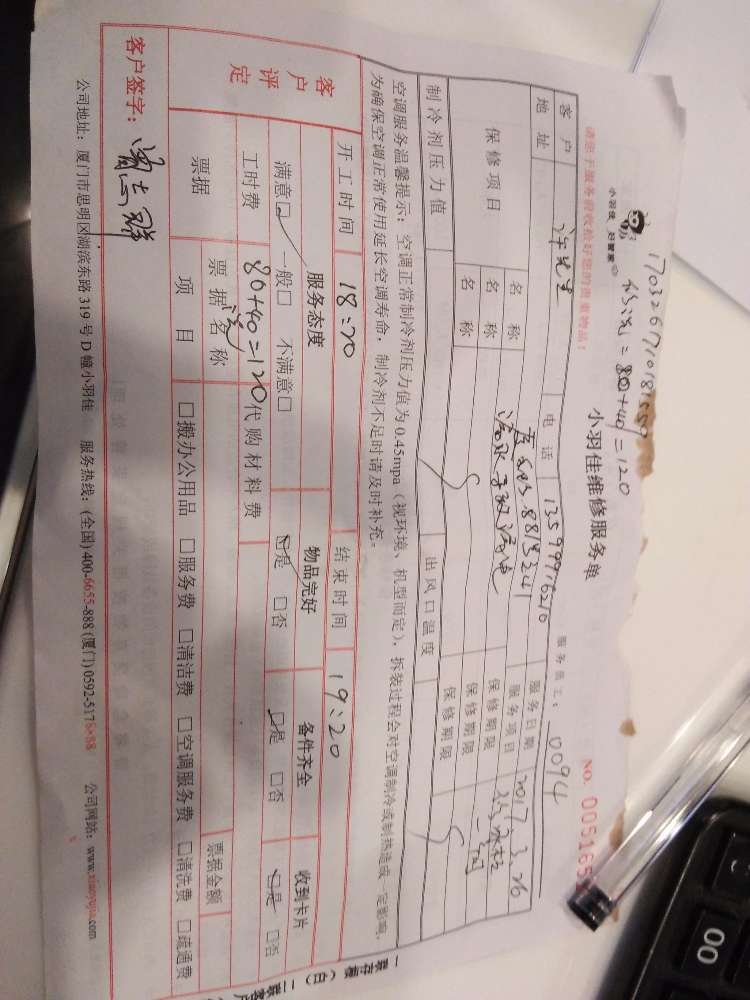 1703261710181559
清洗=80+40=120
小羽佳 好管家
小羽佳维修服务单
NO. 005165
服务员工: 0094
客户 许先生 电话 13599916210 服务日期 2017.3.26
地址 服务项目
保修项目 名称 保修期限
名称 保修期限
名称 保修期限
制冷剂压力值 出风口温度
空调服务温馨提示:空调正常制冷剂压力值为0.45mpa(视环境、机型而定),拆装过程会对空调制冷或制热造成一定影响,
为确保空调正常使用延长空调寿命,制冷剂不足时请及时补充。
开工时间 18:20 结束时间 19:20
客户评定 服务态度 物品完好 备件齐全 收到卡片
满意□ 一般□ 不满意□ □是 □否 □是 □否 □是 □否
工时费 80+40=120 代购材料费
票据 票据名称 票据金额
项目 □搬办公用品 □服务费 □清洁费 □空调服务费 □清洗费 □疏通费
客户签字:
公司地址:厦门市思明区湖滨东路319号D幢小羽佳 服务热线:(全国)400-6655-888(厦门)0592-5176888 公司网站:www.xiaoyujia.com